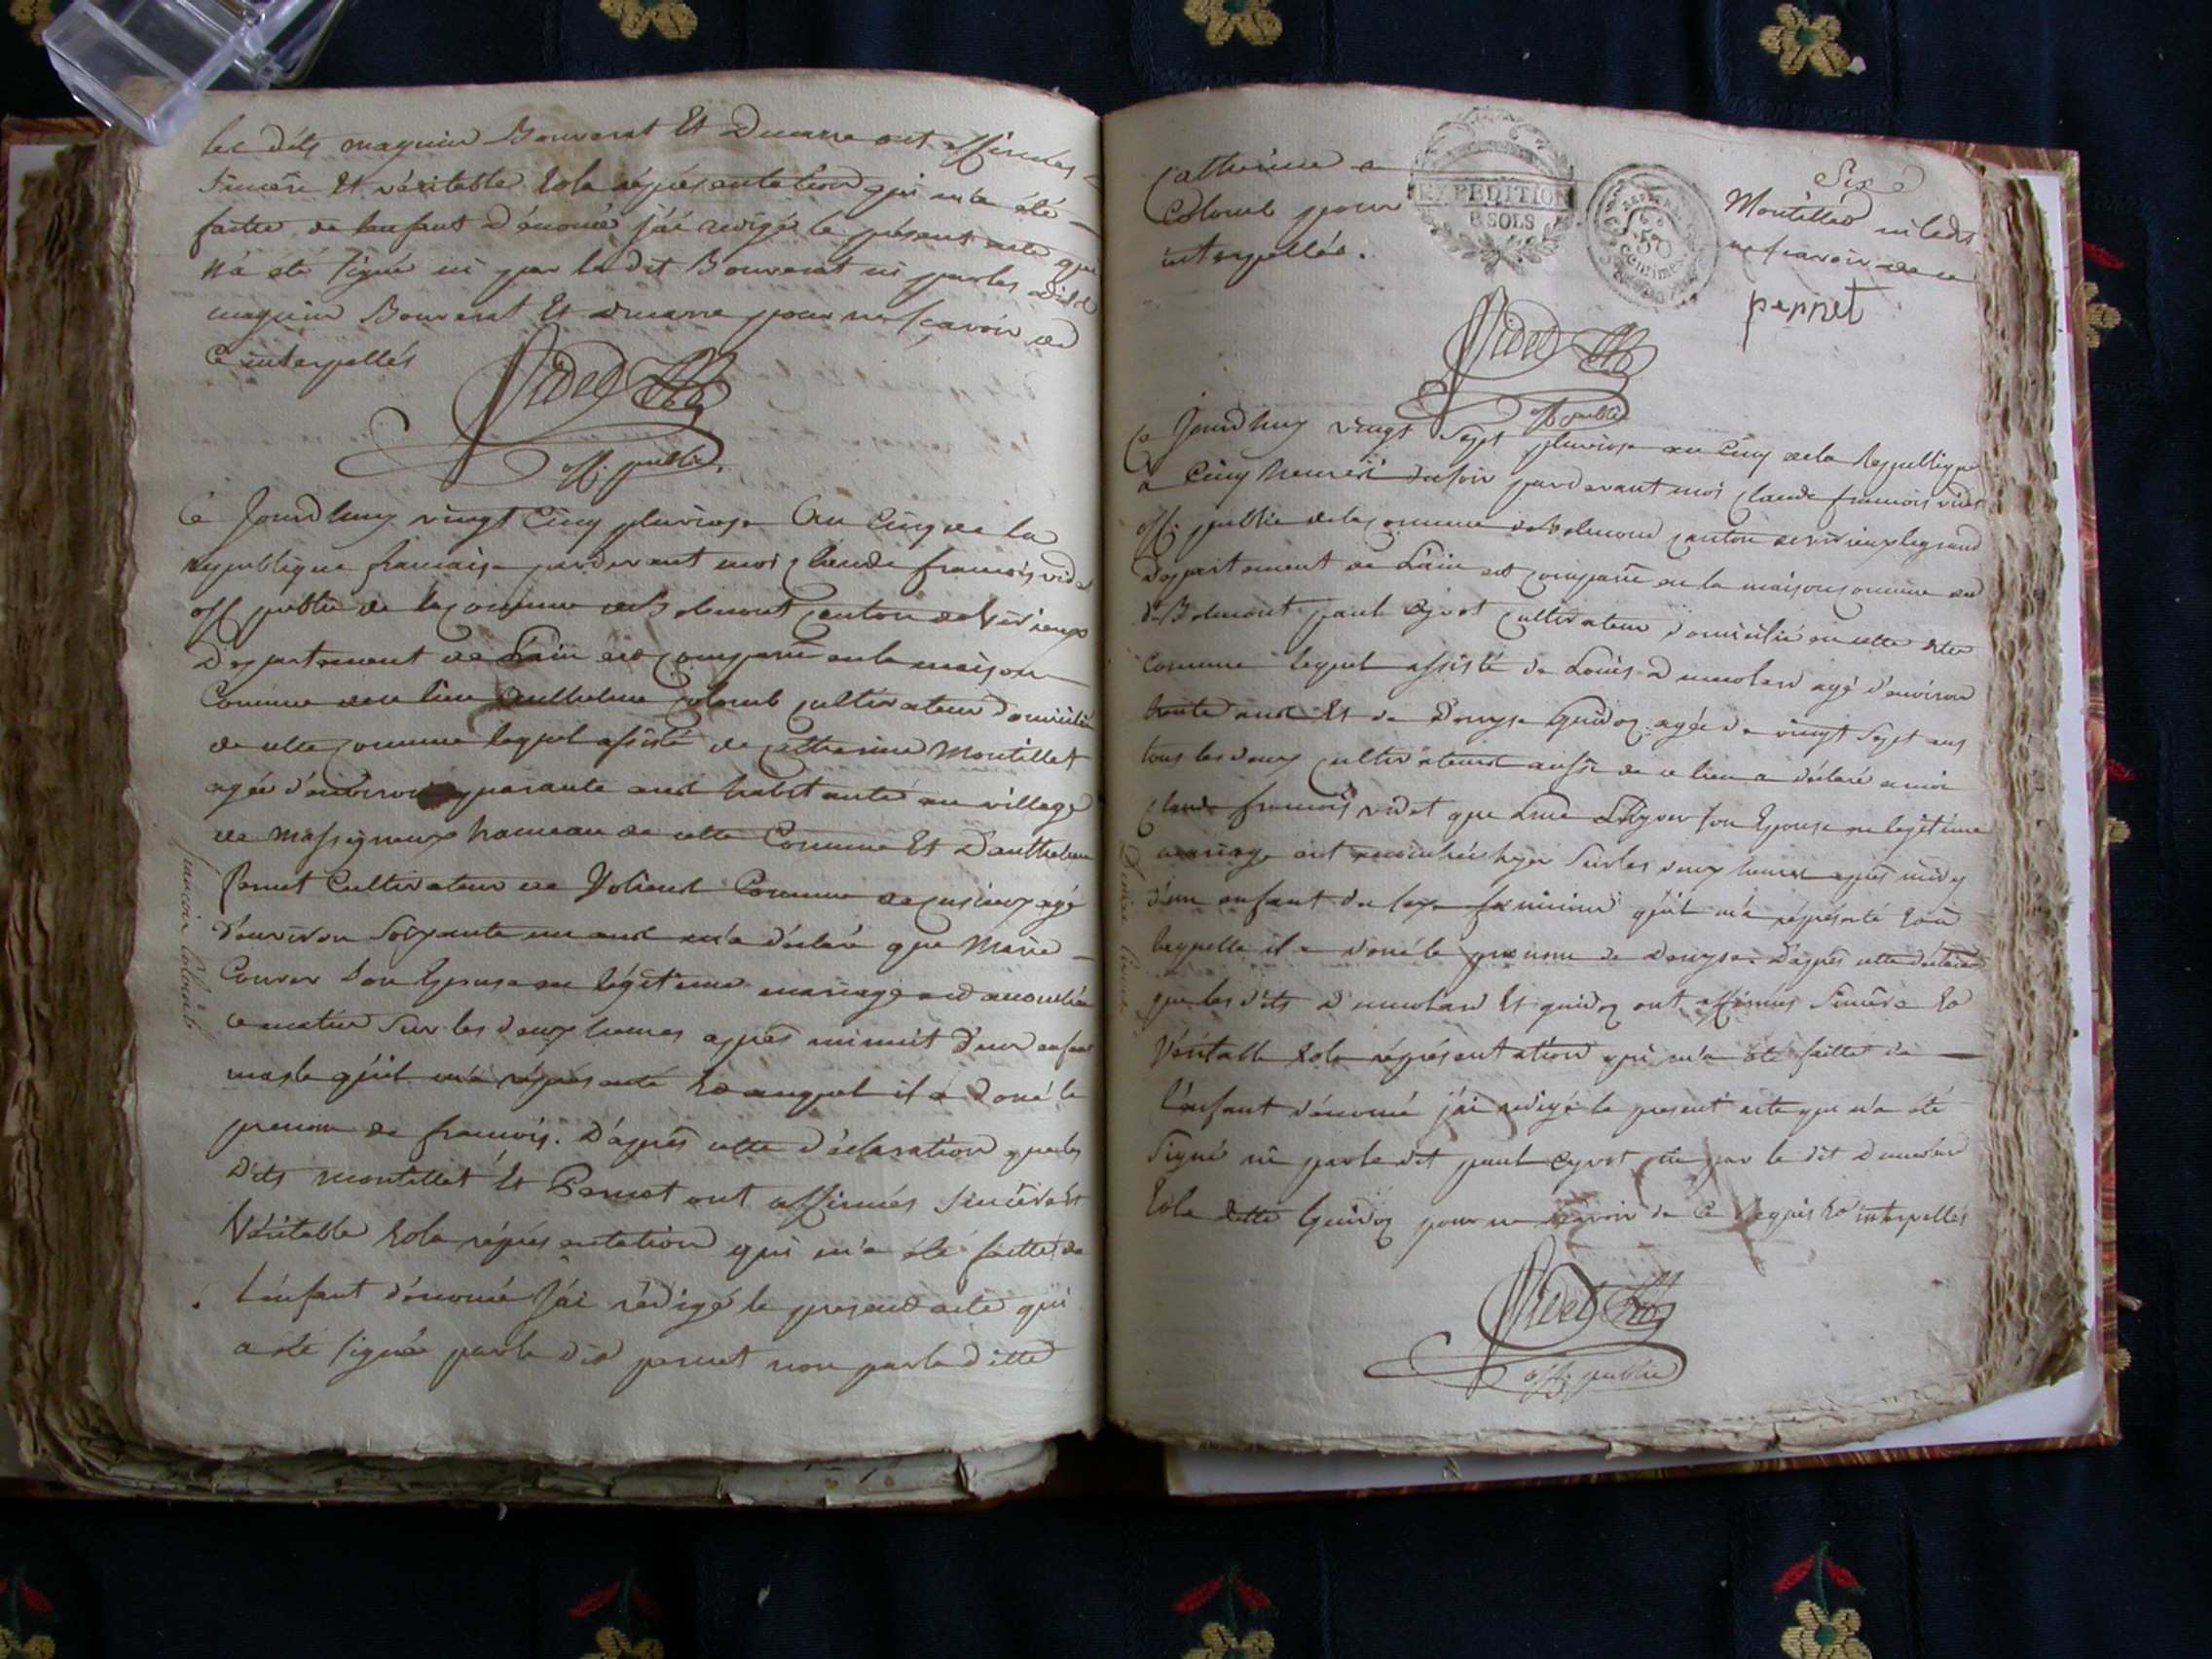 les dits magnin Bouverat Et Ducarre ont affirmés
sincère Et véritable Et la représentation qui m'a été
faitte de l'enfant dénomé j'ai redigé le présent acte qui
n'a été signé ni par le dit Bouverat ni par les dits
magnin Bouverat Et ducarre pour ne sçavoir de
ce interpellés
Videt
off. public
Ce Jourdhuy vingt Cinq pluviose an Cinq de la
republique francaise pardevant moi claude francois videt
off public de la comune de Belmont canton de Virieux
Departement de L'ain est comparu en la maison
Comune de ce lieu Anthelme colomb cultivateur domicilié
de cette comune lequel assisté de catherine Montillet
agée d'environ quarante ans habitante au village
de massigneux hameau de cette Comune Et D'anthelme
pernet Cultivateur de Comune de agé
d'environ soixante un ans m'a déclaré que Marie
son Epouse en légitime mariage est accouchée
ce matin sur les deux heures appres minuit d'un enfant
masle qu'il m'a réprésenté Et auquel il a doné le
prenom de francois. D'appres cette déclaration que les
Dits montillet Et Pernet ont affirmés sincère Et
Véritable Et la réprésentation qui m'a été faitte de
L'enfant dénomé J'ai rédigé le present acte qui
a été signé par le dit pernet non par la ditte
francois Colomb
Six
catherine Montillet ni le dit
Colomb pour ne sçavoir de ce
interpellés.
EXPEDITION
8 SOLS
50
Centimes
pernet
Videt
off public
Ce Jourdhuy vingt Sept pluviose an Cinq de la Republique
a Cinq heures du soir pardevant moi claude francois videt
off. public de la comune de Belmont canton de virieux le grand
Departement de L'ain est comparu en la maison comune du
dit Belmont paul Cyvot cultivateur domicilié en cette ditte
Comune lequel assisté de Louis Dumolard agé d'environ
trente ans Et de Denyse Guidoz agée de vingt Sept ans
tous les deux cultivateurs aussi de ce lieu a déclaré a moi
claude francois videt que son Epouse en legitime
mariage est accouchée hyer sur les deux heures appres midy
d'un enfant du sexe féminin qu'il m'a réprésenté Et a
laquelle il a doné le prenom de Denyse. D'appres cette déclaration
que les dits Dumolard Et guidoz ont affirmés Sincère Et
Véritable Et la réprésentation qui m'a été faitte de
L'enfant dénomé j'ai redigé le present acte qui n'a été
Signé ni par le dit paul Cyvot ni par le dit Dumolard
Et la ditte Guidoz pour ne sçavoir de ce Requis Et interpellés
Videt
off. public